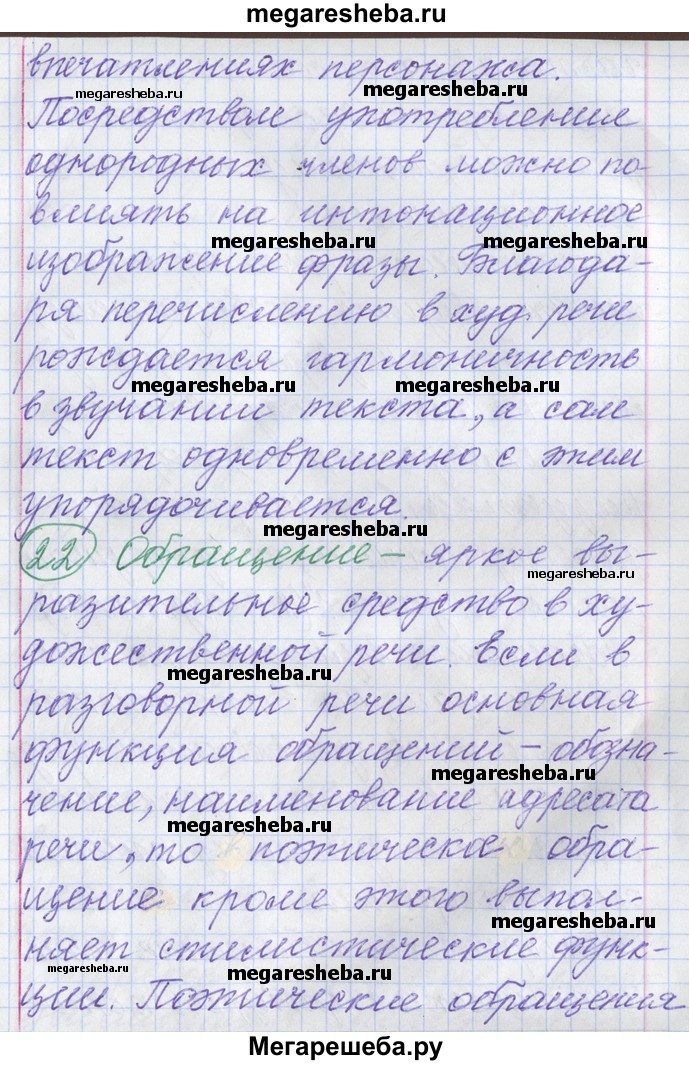 megaresheba.ru
впечатлениях персонажа.
megaresheba.ru
megaresheba.ru
Посредством употребления
однородных членов можно по-
влиять на интонационное
megaresheba.ru
megaresheba.ru
изображение фразы. Благода-
ря перечислению в худ. речи
рождается гармоничность
megaresheba.ru
megaresheba.ru
в звучании текста, а сам
текст одновременно с этим
упорядочивается.
megaresheba.ru
22 Обращение – яркое вы-
megaresheba.ru
разительное средство в ху-
дожественной речи. Если в
megaresheba.ru
разговорной речи основная
функция обращений – обозна-
megaresheba.ru
чение, наименование адресата
megaresheba.ru
речи, то поэтическое обра-
щение кроме этого выпол-
megaresheba.ru
няет стилистические функ-
megaresheba.ru
megaresheba.ru
ции. Поэтические обращения
Мегарешеба.ру